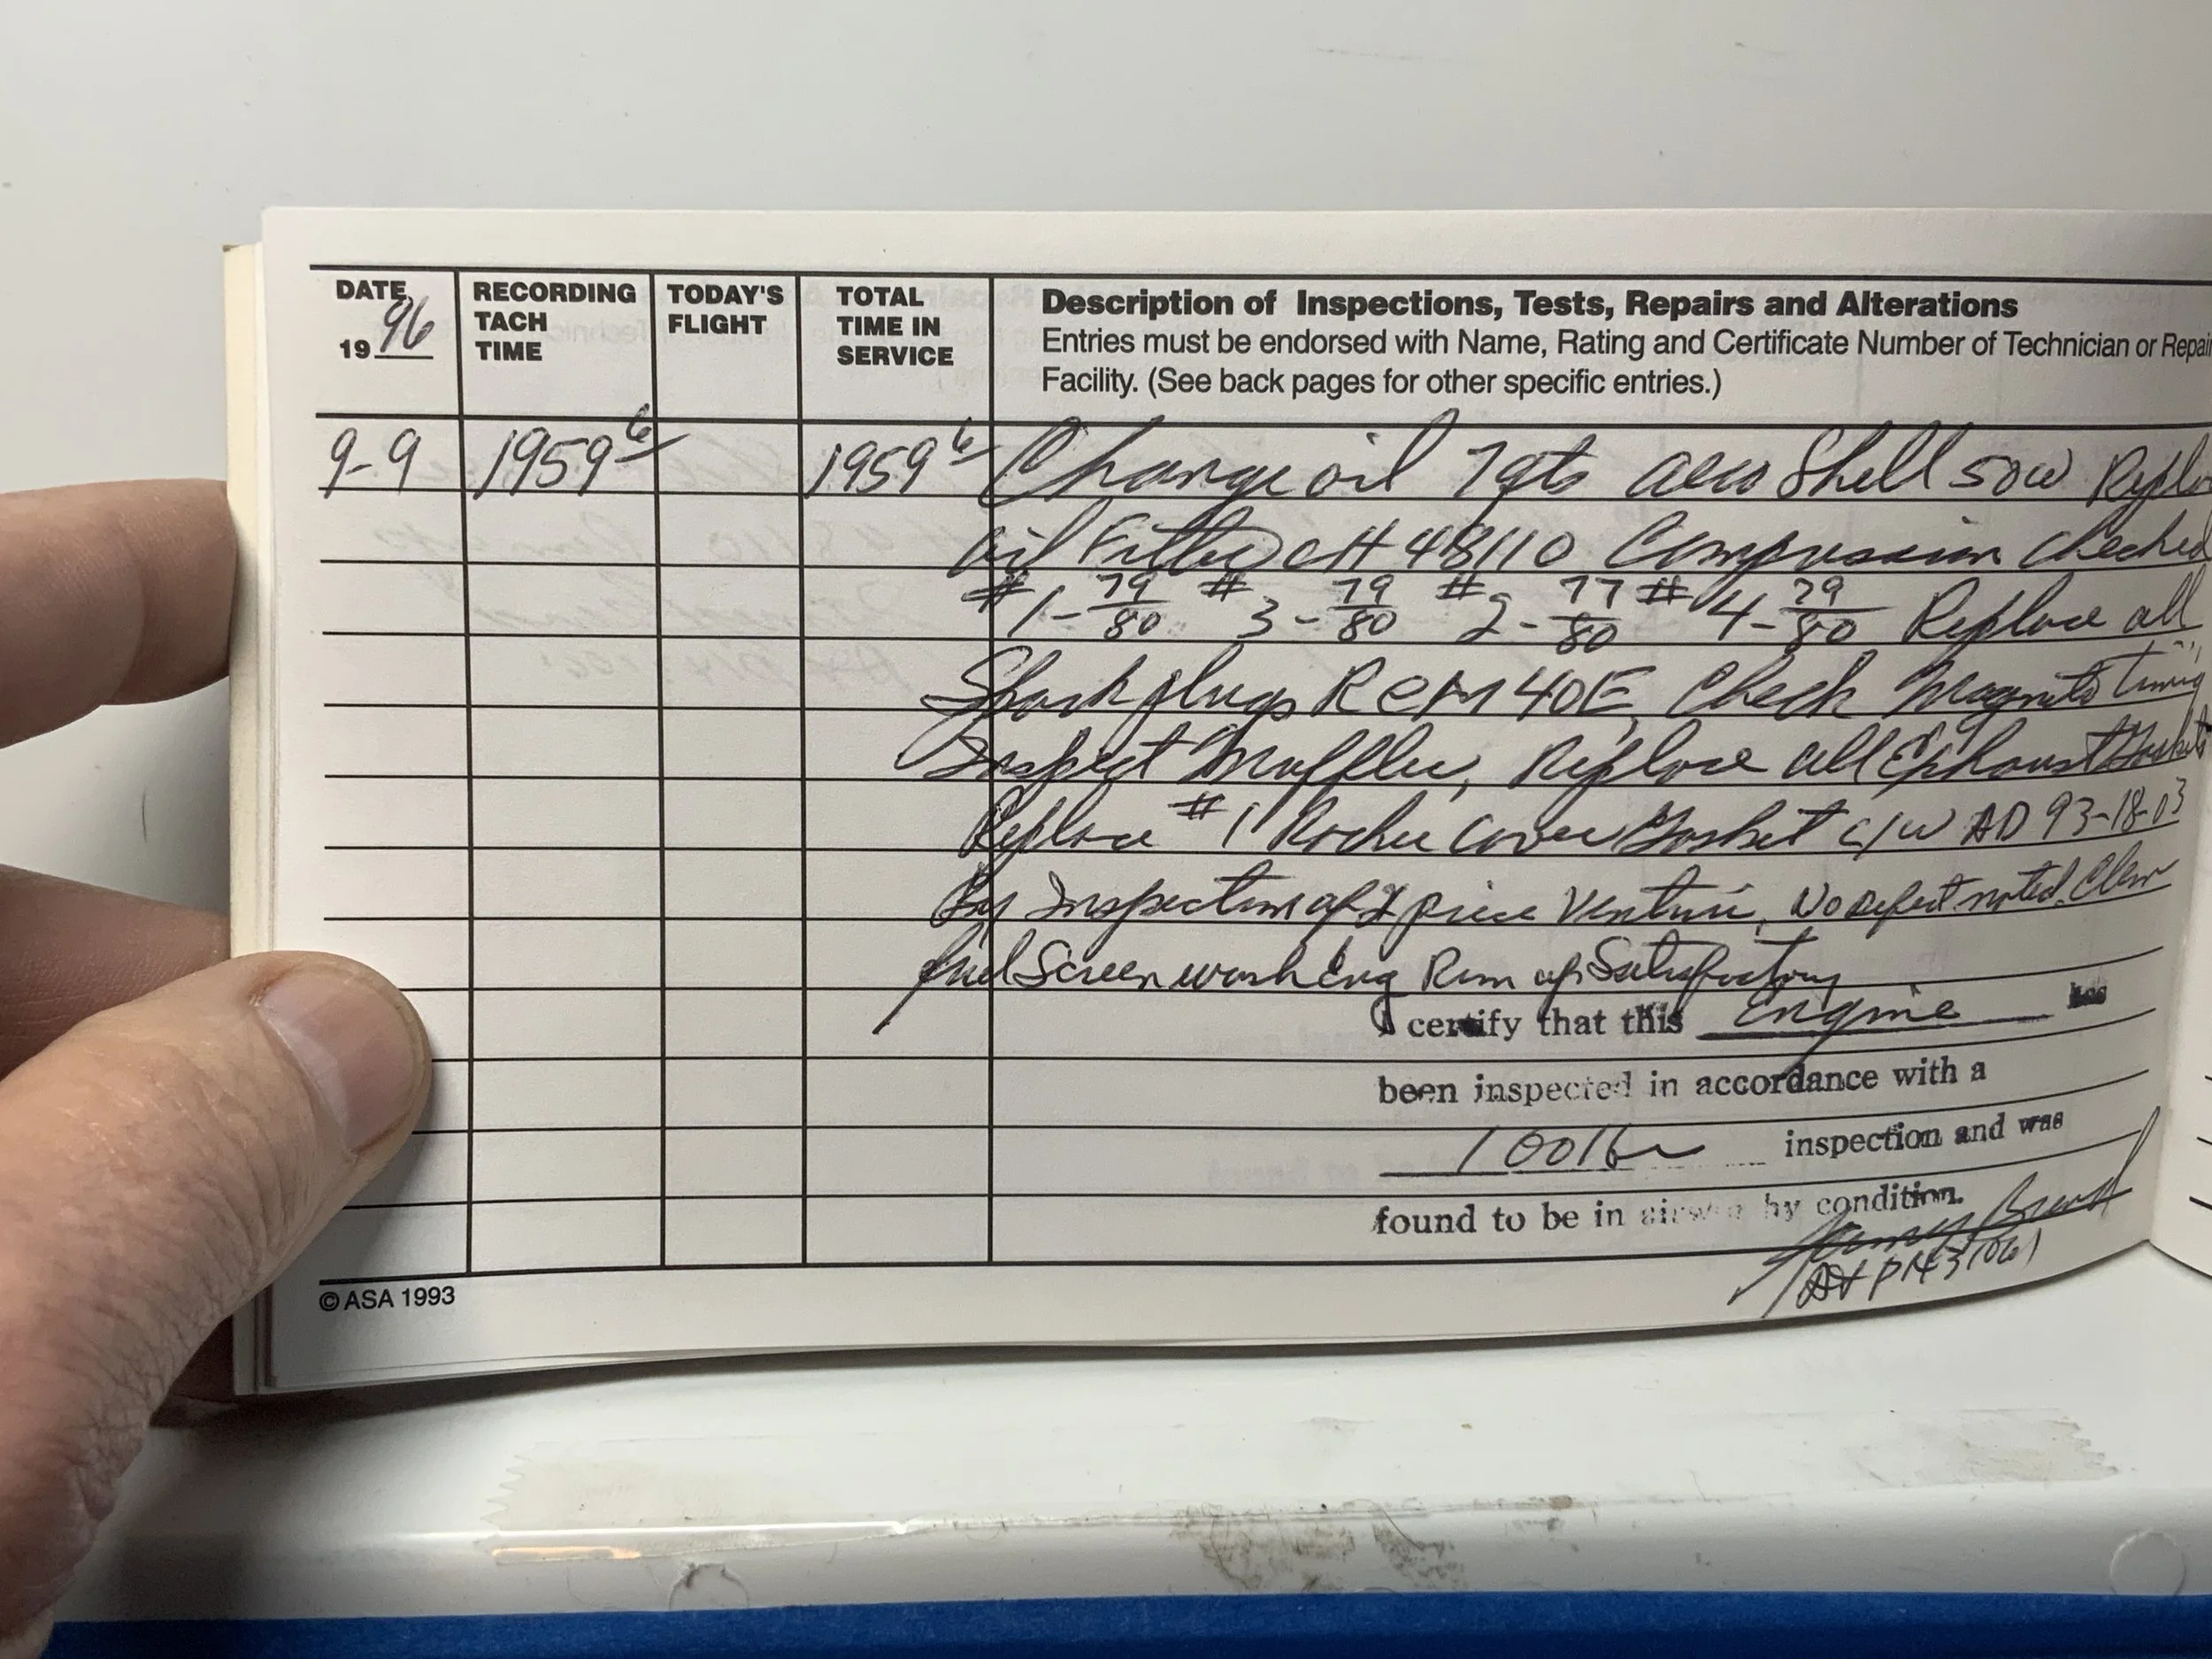 DATE 19 96
RECORDING TACH TIME
TODAY'S FLIGHT
TOTAL TIME IN SERVICE
Description of Inspections, Tests, Repairs and Alterations
Entries must be endorsed with Name, Rating and Certificate Number of Technician or Repair
Facility. (See back pages for other specific entries.)
9-9 1959 6 1959 6 Change oil 7qts aero Shell 50W Repla
oil Filter CH 48110 Compression checked
#1-79/80 #3-79/80 #2-77/80 #4-79/80 Replace all
Spark plugs REM40E, Check Magneto timing
Inspect Muffler, Replace all Exhaust Gaskets
Replace #1 Rocker Cover Gasket c/w AD 93-18-03
By Inspection of 2 piece Venturi, No defect noted. Clean
fuel Screen wash Eng Run up Satisfactory
I certify that this Engine has
been inspected in accordance with a
100 Hr inspection and was
found to be in airworthy condition.
© ASA 1993